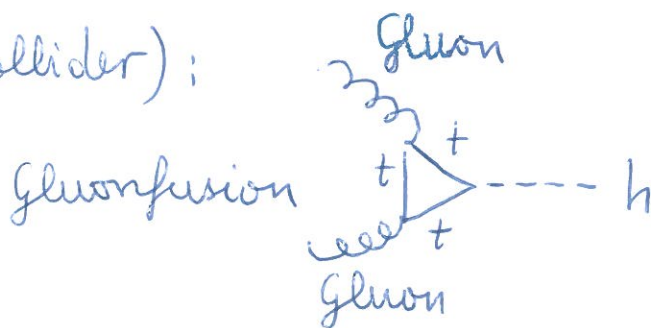 ollider):
Gluon
t
t
Gluonfusion
h
t
Gluon